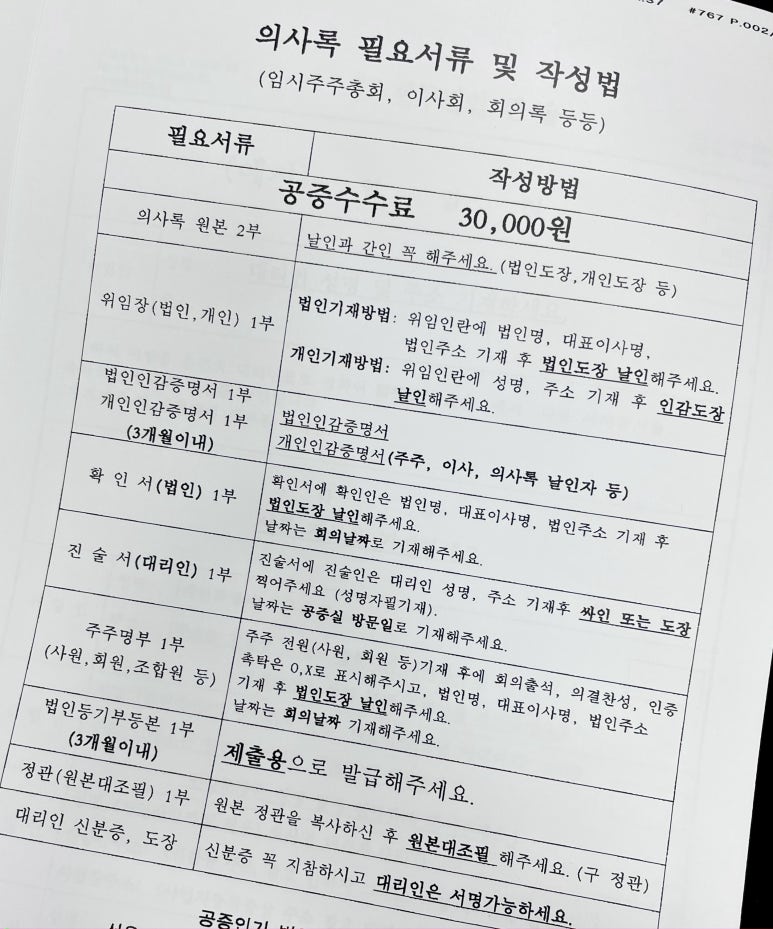 #767 P.002/
의사록 필요서류 및 작성법
(임시주주총회, 이사회, 회의록 등등)
필요서류
작성방법
공증수수료 30,000원
의사록 원본 2부
날인과 간인 꼭 해주세요. (법인도장,개인도장 등)
위임장(법인,개인) 1부
법인기재방법: 위임인란에 법인명, 대표이사명,
법인주소 기재 후 법인도장 날인해주세요.
개인기재방법: 위임인란에 성명, 주소 기재 후 인감도장
날인해주세요.
법인인감증명서 1부
개인인감증명서 1부
(3개월이내)
법인인감증명서
개인인감증명서(주주, 이사, 의사록 날인자 등)
확 인 서(법인) 1부
확인서에 확인인은 법인명, 대표이사명, 법인주소 기재 후
법인도장 날인해주세요.
날짜는 회의날짜로 기재해주세요.
진 술 서(대리인) 1부
진술서에 진술인은 대리인 성명, 주소 기재후 싸인 또는 도장
찍어주세요 (성명자필기재).
날짜는 공증실 방문일로 기재해주세요.
주주명부 1부
(사원,회원,조합원 등)
주주 전원(사원, 회원 등)기재 후에 회의출석, 의결찬성, 인증
촉탁은 O,X로 표시해주시고, 법인명, 대표이사명, 법인주소
기재 후 법인도장 날인해주세요.
날짜는 회의날짜 기재해주세요.
법인등기부등본 1부
(3개월이내)
제출용으로 발급해주세요.
정관(원본대조필) 1부
원본 정관을 복사하신 후 원본대조필 해주세요. (구 정관)
대리인 신분증, 도장
신분증 꼭 지참하시고 대리인은 서명가능하세요.